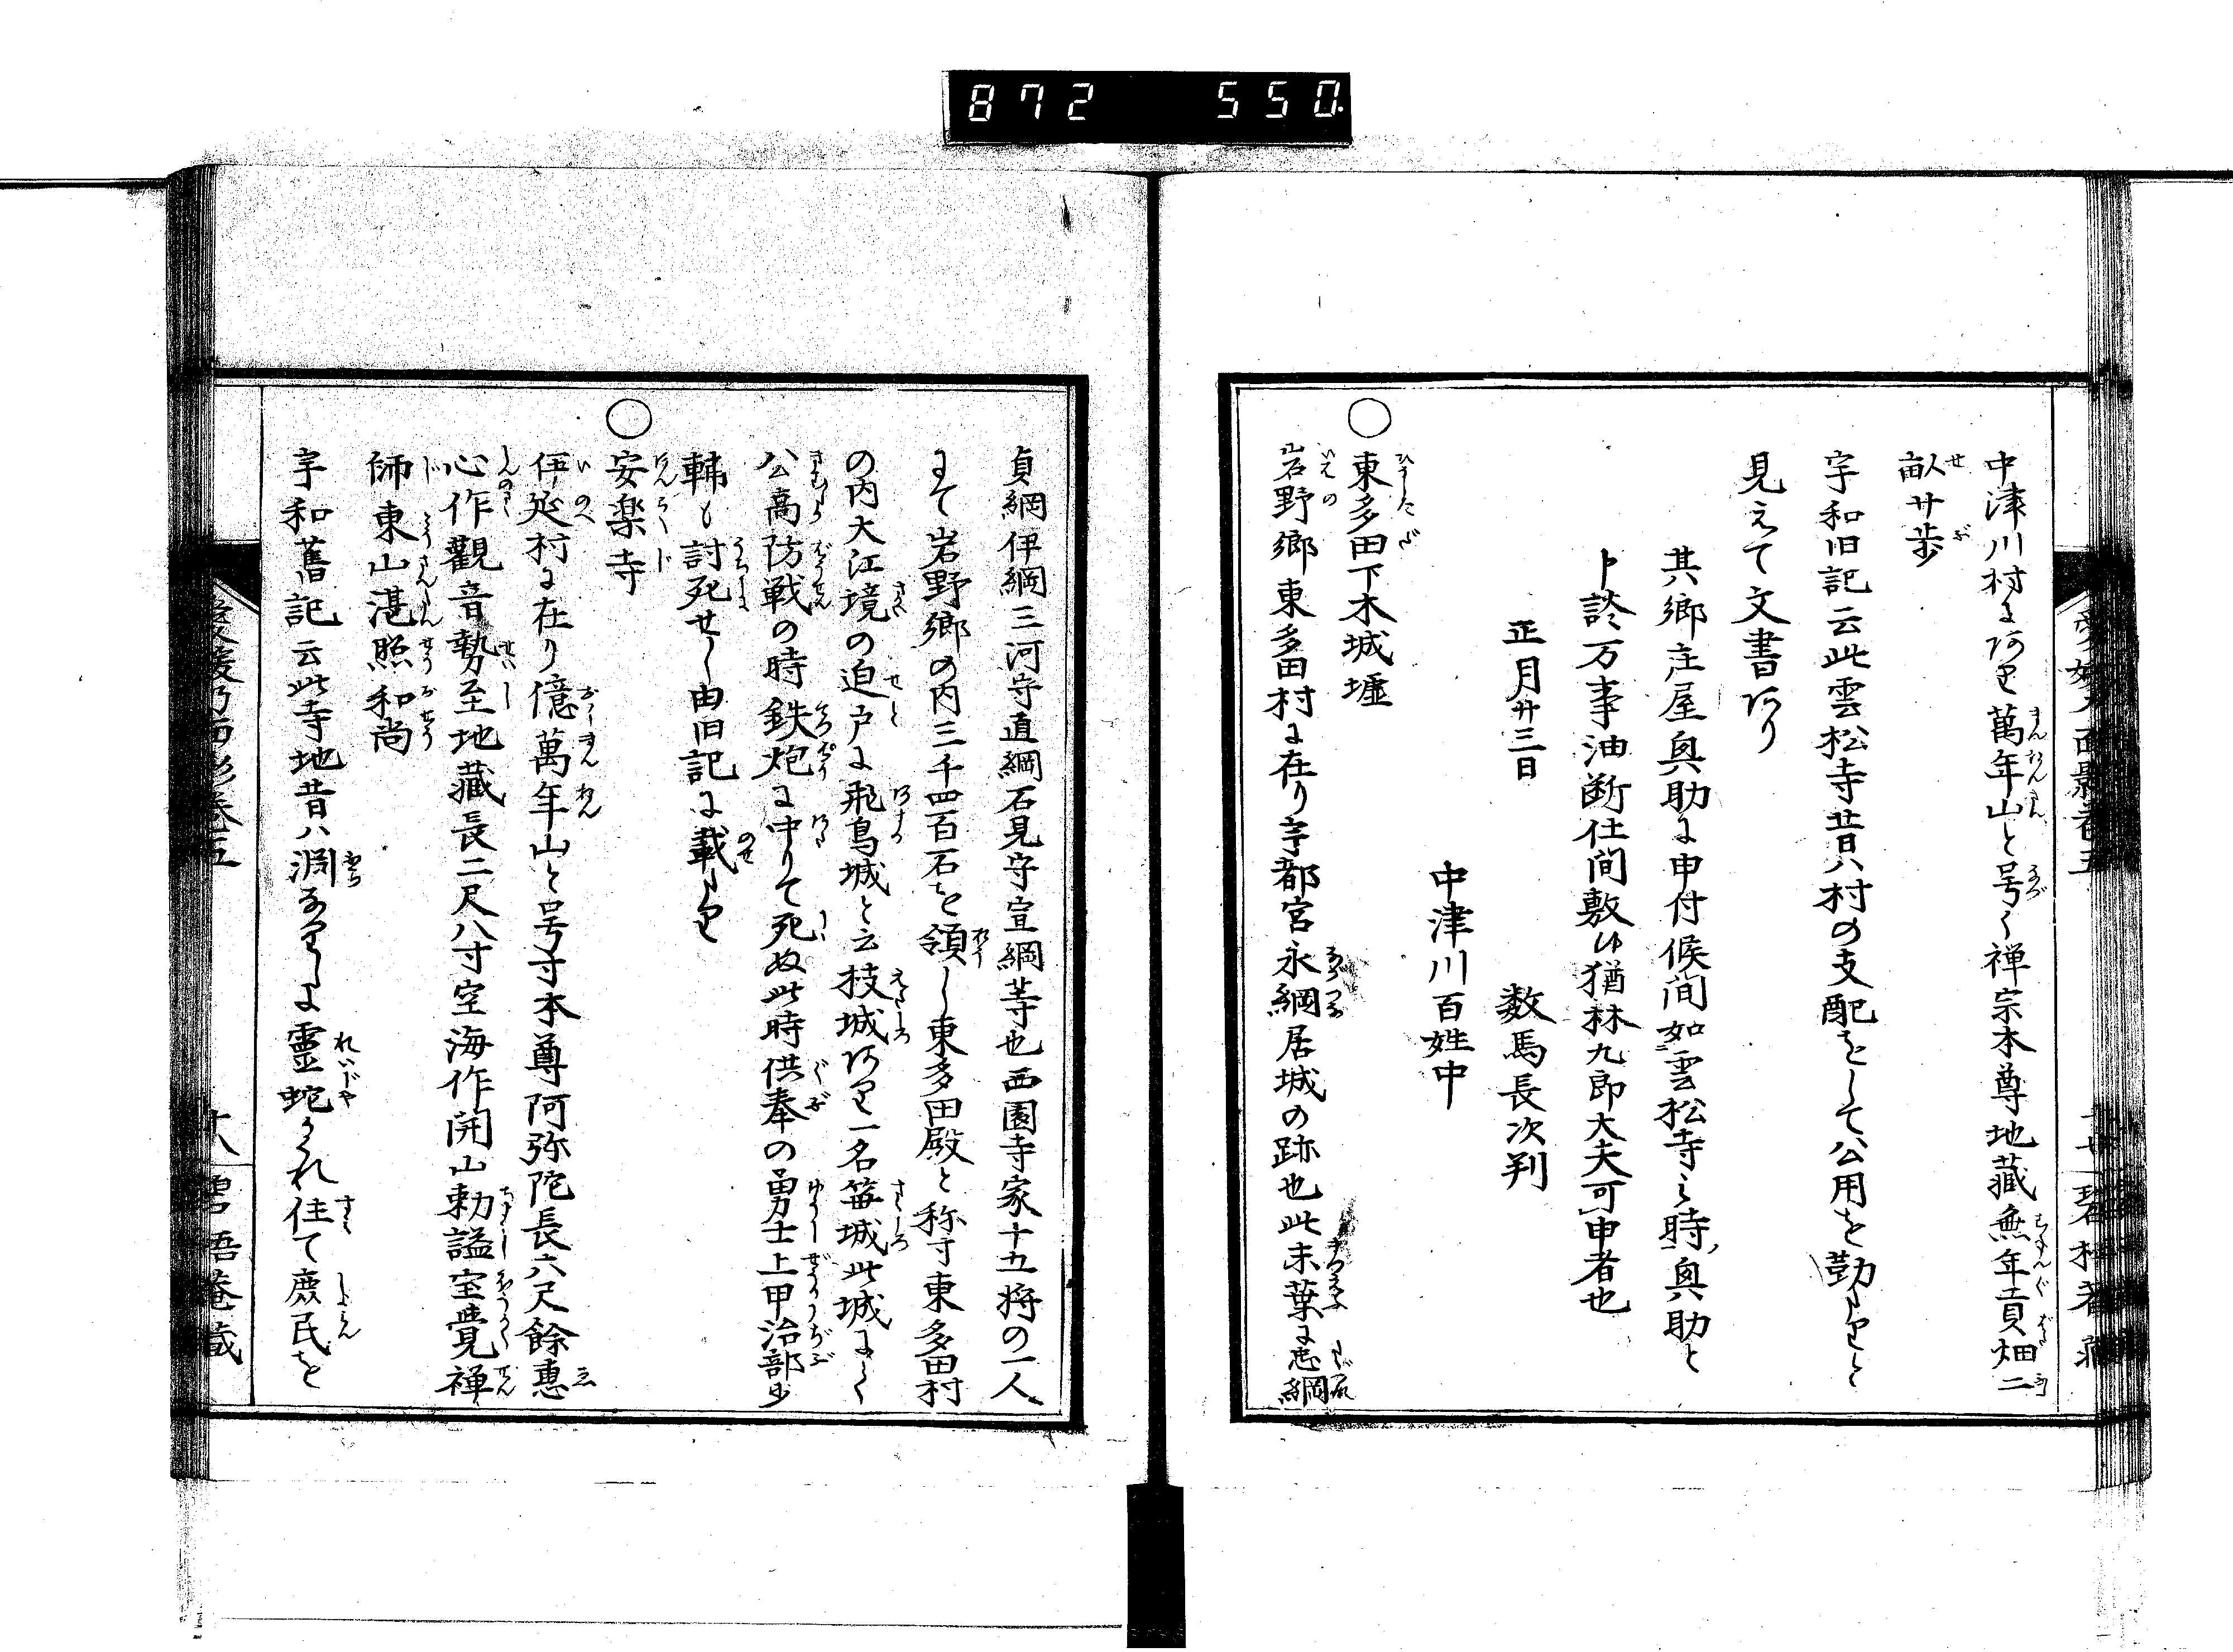 872 550
中津川村にあり萬年山と号く禅宗本尊地藏無年貢畑二
畝廿歩
宇和旧記云此雲松寺昔ハ村の支配をして公用を勤たりと
見えて文書あり
其郷庄屋與助に申付候間如雲松寺之時與助と
卜談万事油断仕間敷候猶林九郎大夫可申者也
正月廿三日
数馬長次判
中津川百姓中
○東多田下木城墟
岩野郷東多田村に在り宇都宮永綱居城の跡也此末葉に忠綱
貞綱伊綱三河守直綱石見守宣綱等也西園寺家十五将の一人
にて岩野郷の内三千四百石を領し東多田殿と称す東多田村
の内大江境の迫戸に飛鳥城と云枝城あり一名笹城此城にて
公高防戦の時鉄炮に中りて死ぬ此時供奉の勇士上甲治部少
輔も討死せし由旧記に載たり
○安楽寺
伊延村に在り億萬年山と号す本尊阿弥陀長六尺餘惠
心作觀音勢至地藏長二尺八寸空海作開山勅謚宝覺禅
師東山湛照和尚
宇和舊記云此寺地昔ハ淵なりしに靈蛇かくれ住て庶民を